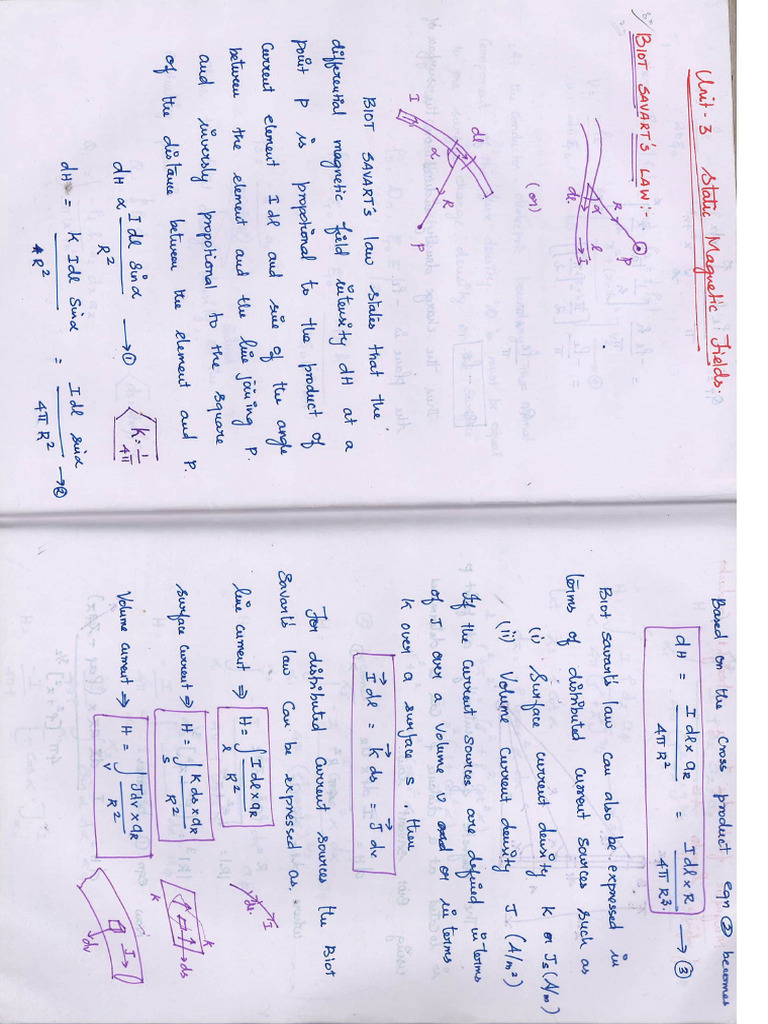 Unit-3 Static Magnetic Fields.
BIOT SAVART'S LAW:-
P
R
α
l
dl
I
(or)
I
dl
α
R
P
BIOT SAVART'S law states that the
differential magnetic field intensity dH at a
point P is propotional to the product of
current element I dl and sine of the angle
between the element and the line joining P.
and inversly propotional to the square
of the distance between the element and P.
dH α I dl sin α / R² → ①
K = 1/4π
dH = K Idl Sinα / R² = Idl sinα / 4π R² → ②
Based on the cross product eqn ② becomes
dH = I dl x aR / 4π R² = I dl x R / 4π R3. → ③
Biot savart's law can also be expressed in
terms of distributed current sources such as
(i) Surface current density K or Js (A/m)
(ii) Volume current density J (A/m²)
If the current sources are defined interms
of I over a volume v and or interms
K over a surface s. then
I dl = K ds = J dv
For distributed current sources the Biot
Savart's law can be expressed as.
line current ⇒ H = ∫l I dl x aR / R²
I
dl
surface current ⇒ H = ∫s K ds x aR / R²
K
ds
K
Volume current ⇒ H = ∫v J dv x aR / R²
I
dv